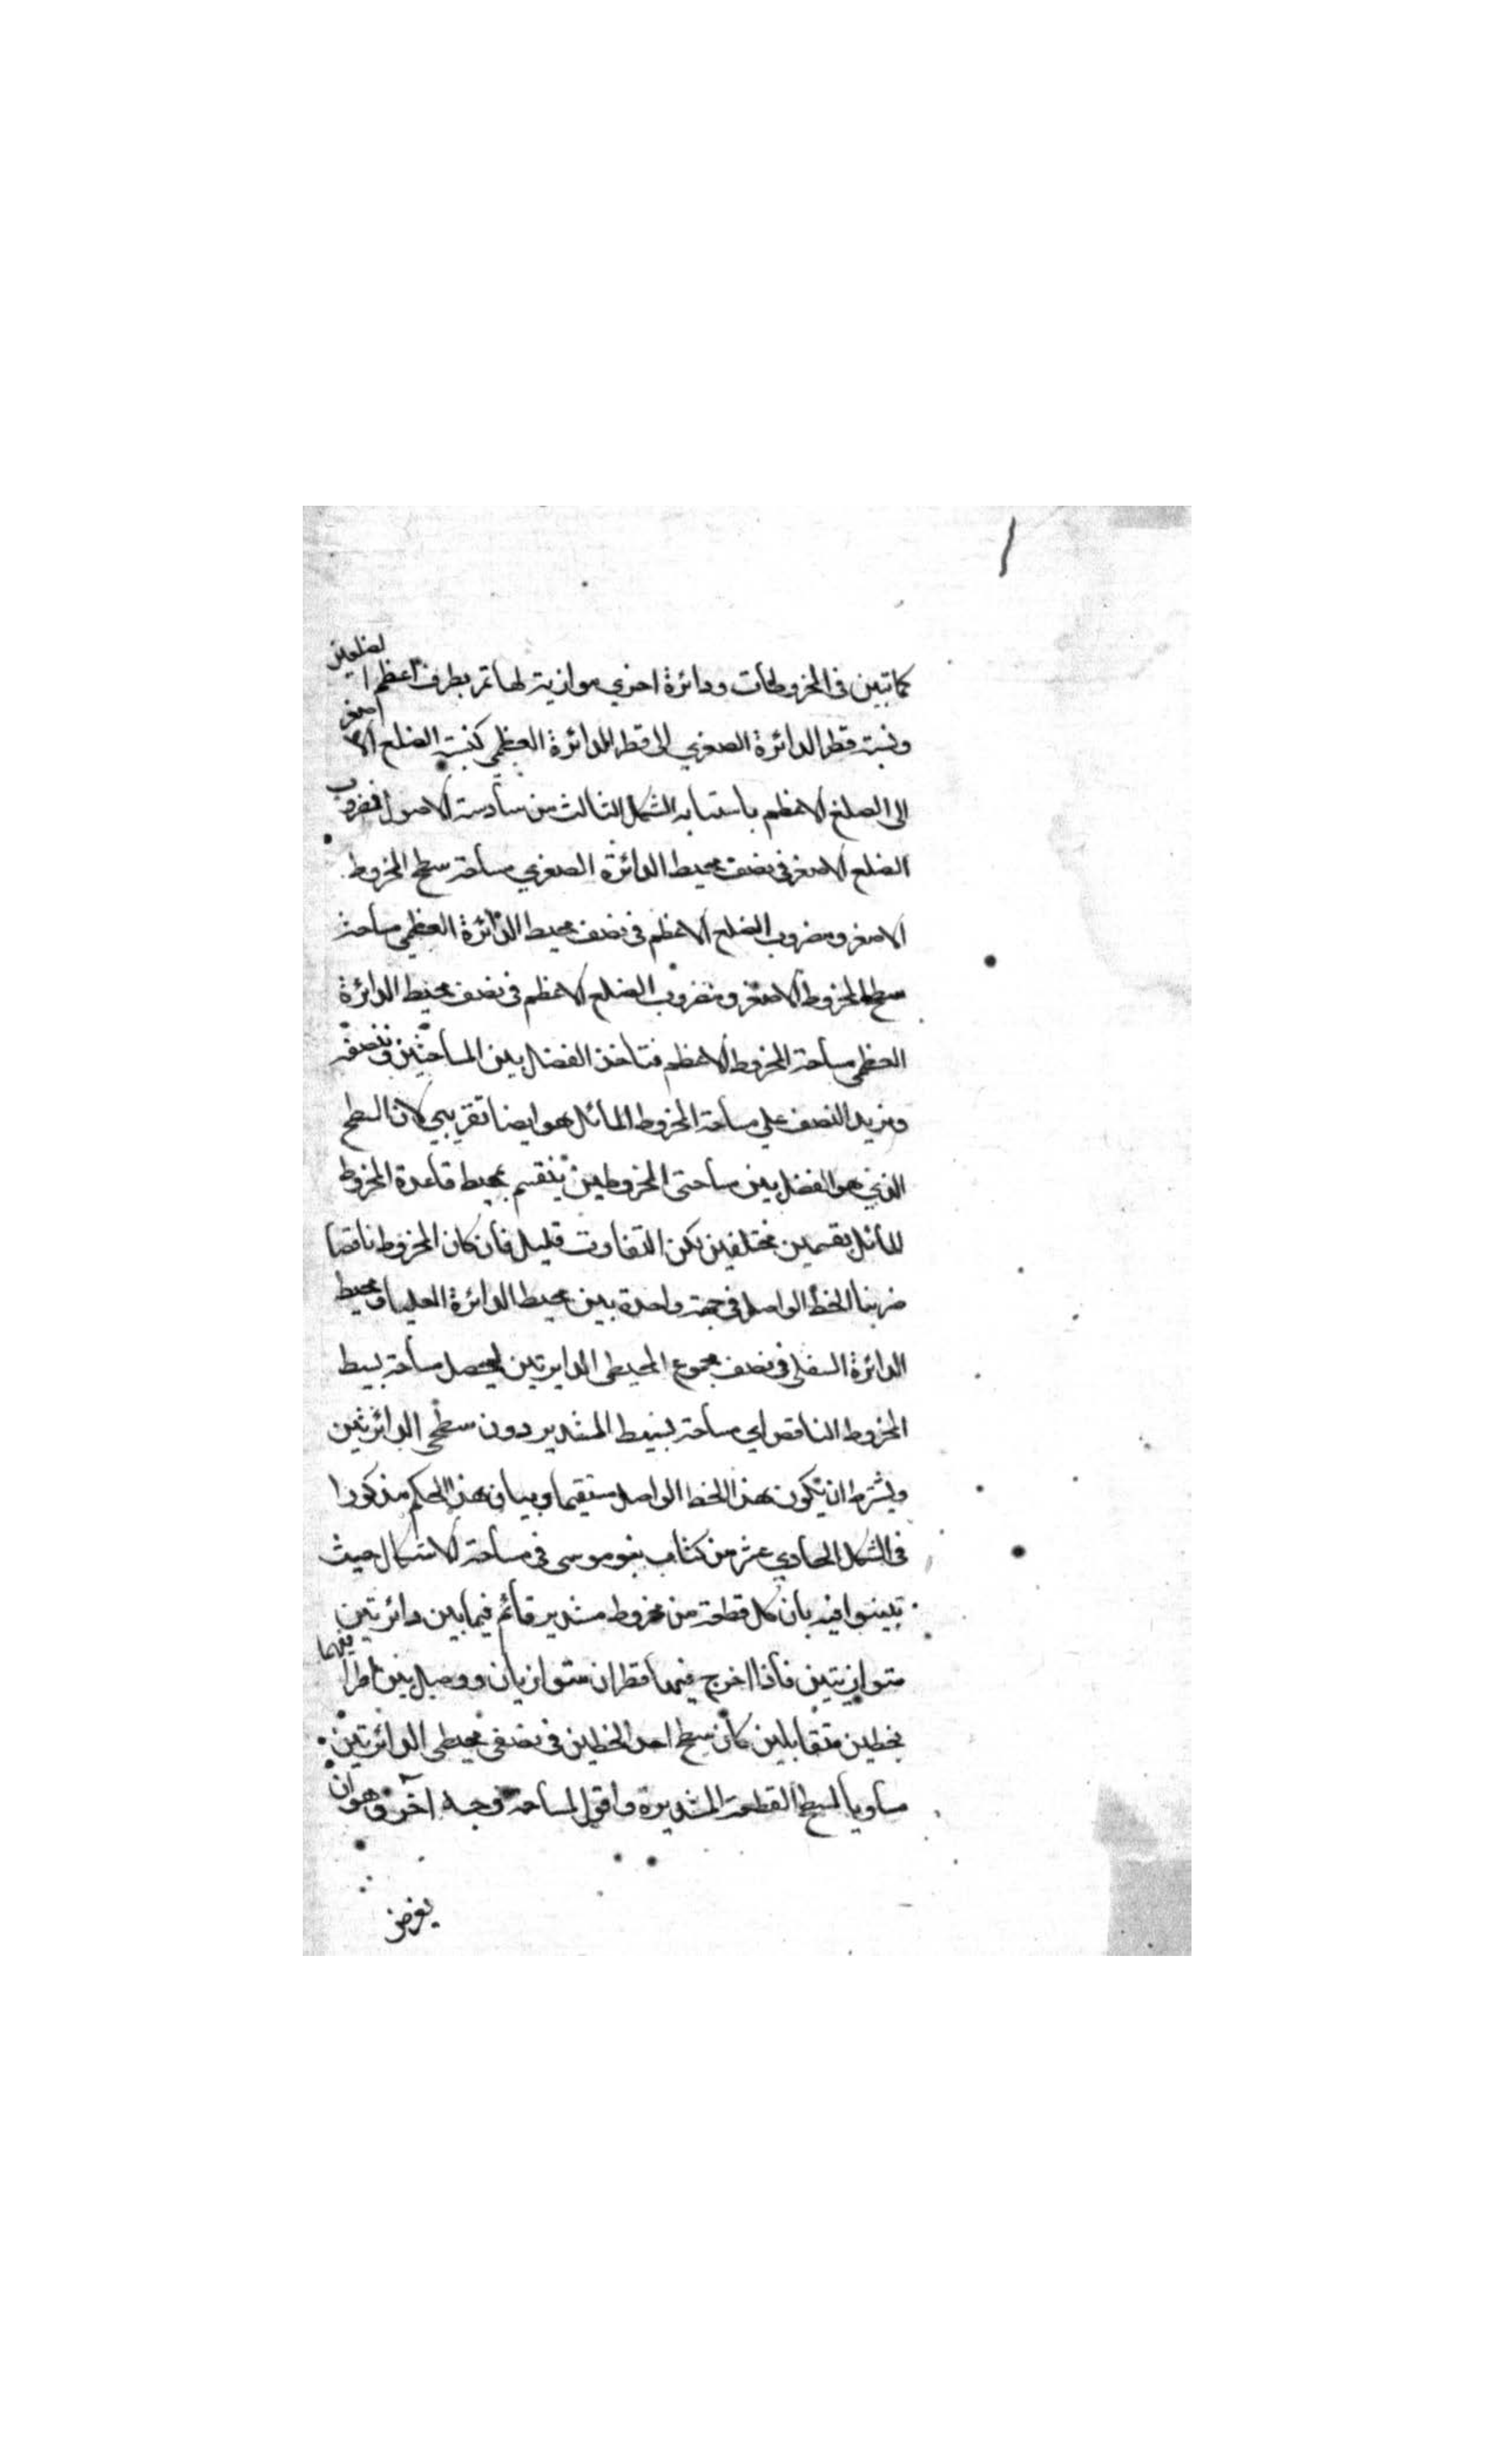 كما تبين في المخروطات ودائرة اخري موازية لها تمر بطرف اعظم الضلعين
ونسبة قطر الدائرة الصغري الى قطر الدائرة العظمي كنسبة الضلع الاصغر
الى الضلع الاعظم باستبانه الشكل الثالث من سادسة الاصول فمضروب
الضلع الاصغر في نصف محيط الدائرة الصغري مساحة سطح المخروط
الاصغر ومضروب الضلع الاعظم في نصف محيط الدائرة العظمي مساحة
سطح المخروط الاصغر ومضروب الضلع الاعظم في نصف محيط الدائرة
العظمي مساحة المخروط الاعظم فتاخذ الفضل بين المساحتين وننصفه
ونزيد النصف علي مساحة المخروط المائل هو ايضا تقريبي لان السطح
الذي هو الفضل بين مساحتي المخروطين ينقسم بمحيط قاعدة المخروط
المائل بقسمين مختلفين لكن التفاوت قليل فان كان المخروط ناقصا
ضربنا الخط الواصل في جهة واحدة بين محيط الدائرة العليا ومحيط
الدائرة السفلي في نصف مجموع المحيطي الدايرتين ليحصل مساحة بسيط
المخروط الناقص اي مساحة بسيط المستدير دون سطحي الدائرتين
ويشترط ان يكون هذا الخط الواصل مستقيما وبيان هذا الحكم مذكورا
في الشكل الحادي عشر من كتاب بنو موسى في مساحة الاشكال حيث
تبينوا فيه بان كل قطعة من مخروط مستدير قائم فيما بين دائرتين
متوازيتين فاذا اخرج فيهما قطران متوازيان ووصل بين اطرافهما
بخطين متقابلين كان سطح احد الخطين في نصفي محيطي الدائرتين
مساويا لسطح القطعة المستديرة واقول لمساحة وجه آخر وهو ان
يفرض